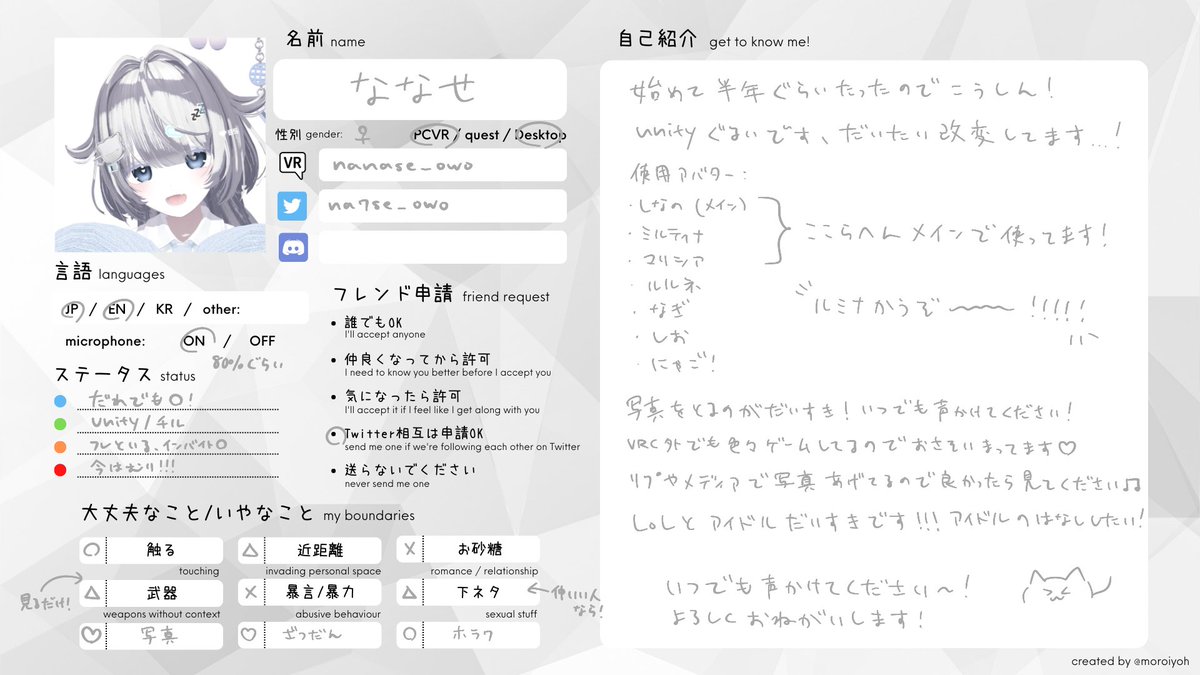 名前 name
ななせ
性別 gender: ♀ PCVR / quest / Desktop
VR nanase_owo
na7se_owo
言語 languages
JP / EN / KR / other:
microphone: ON / OFF
80%ぐらい
ステータス status
だれでも〇!
unity/チル
フレといる、インバイト〇
今はむり!!!
フレンド申請 friend request
• 誰でもOK
I'll accept anyone
• 仲良くなってから許可
I need to know you better before I accept you
• 気になったら許可
I'll accept it if I feel like I get along with you
• Twitter相互は申請OK
send me one if we're following each other on Twitter
• 送らないでください
never send me one
大丈夫なこと/いやなこと my boundaries
〇 触る
touching
△ 近距離
invading personal space
X お砂糖
romance / relationship
見るだけ!
△ 武器
weapons without context
X 暴言/暴力
abusive behaviour
△ 下ネタ
sexual stuff
仲いい人なら!
♡ 写真
♡ ざつだん
〇 ホラワ
自己紹介 get to know me!
始めて半年ぐらいたったのでこうしん!
unityぐるいです、だいたい改変してます...!
使用アバター:
・しなの (メイン)
・ミルティナ
・マリシア
ここらへんメインで使ってます!
・ルルネ
・なぎ
・しお
・にゃご!
ルミナかうぞ〜〜 !!!!!
写真をとるのがだいすき!いつでも声かけてください!
VRC外でも色々ゲームしてるのでおさそいまってます♡
リプやメディアで写真あげてるので良かったら見てください♫
LoLとアイドルだいすきです!!!アイドルのはなししたい!
いつでも声かけてください〜!
よろしくおねがいします!
created by @moroiyoh